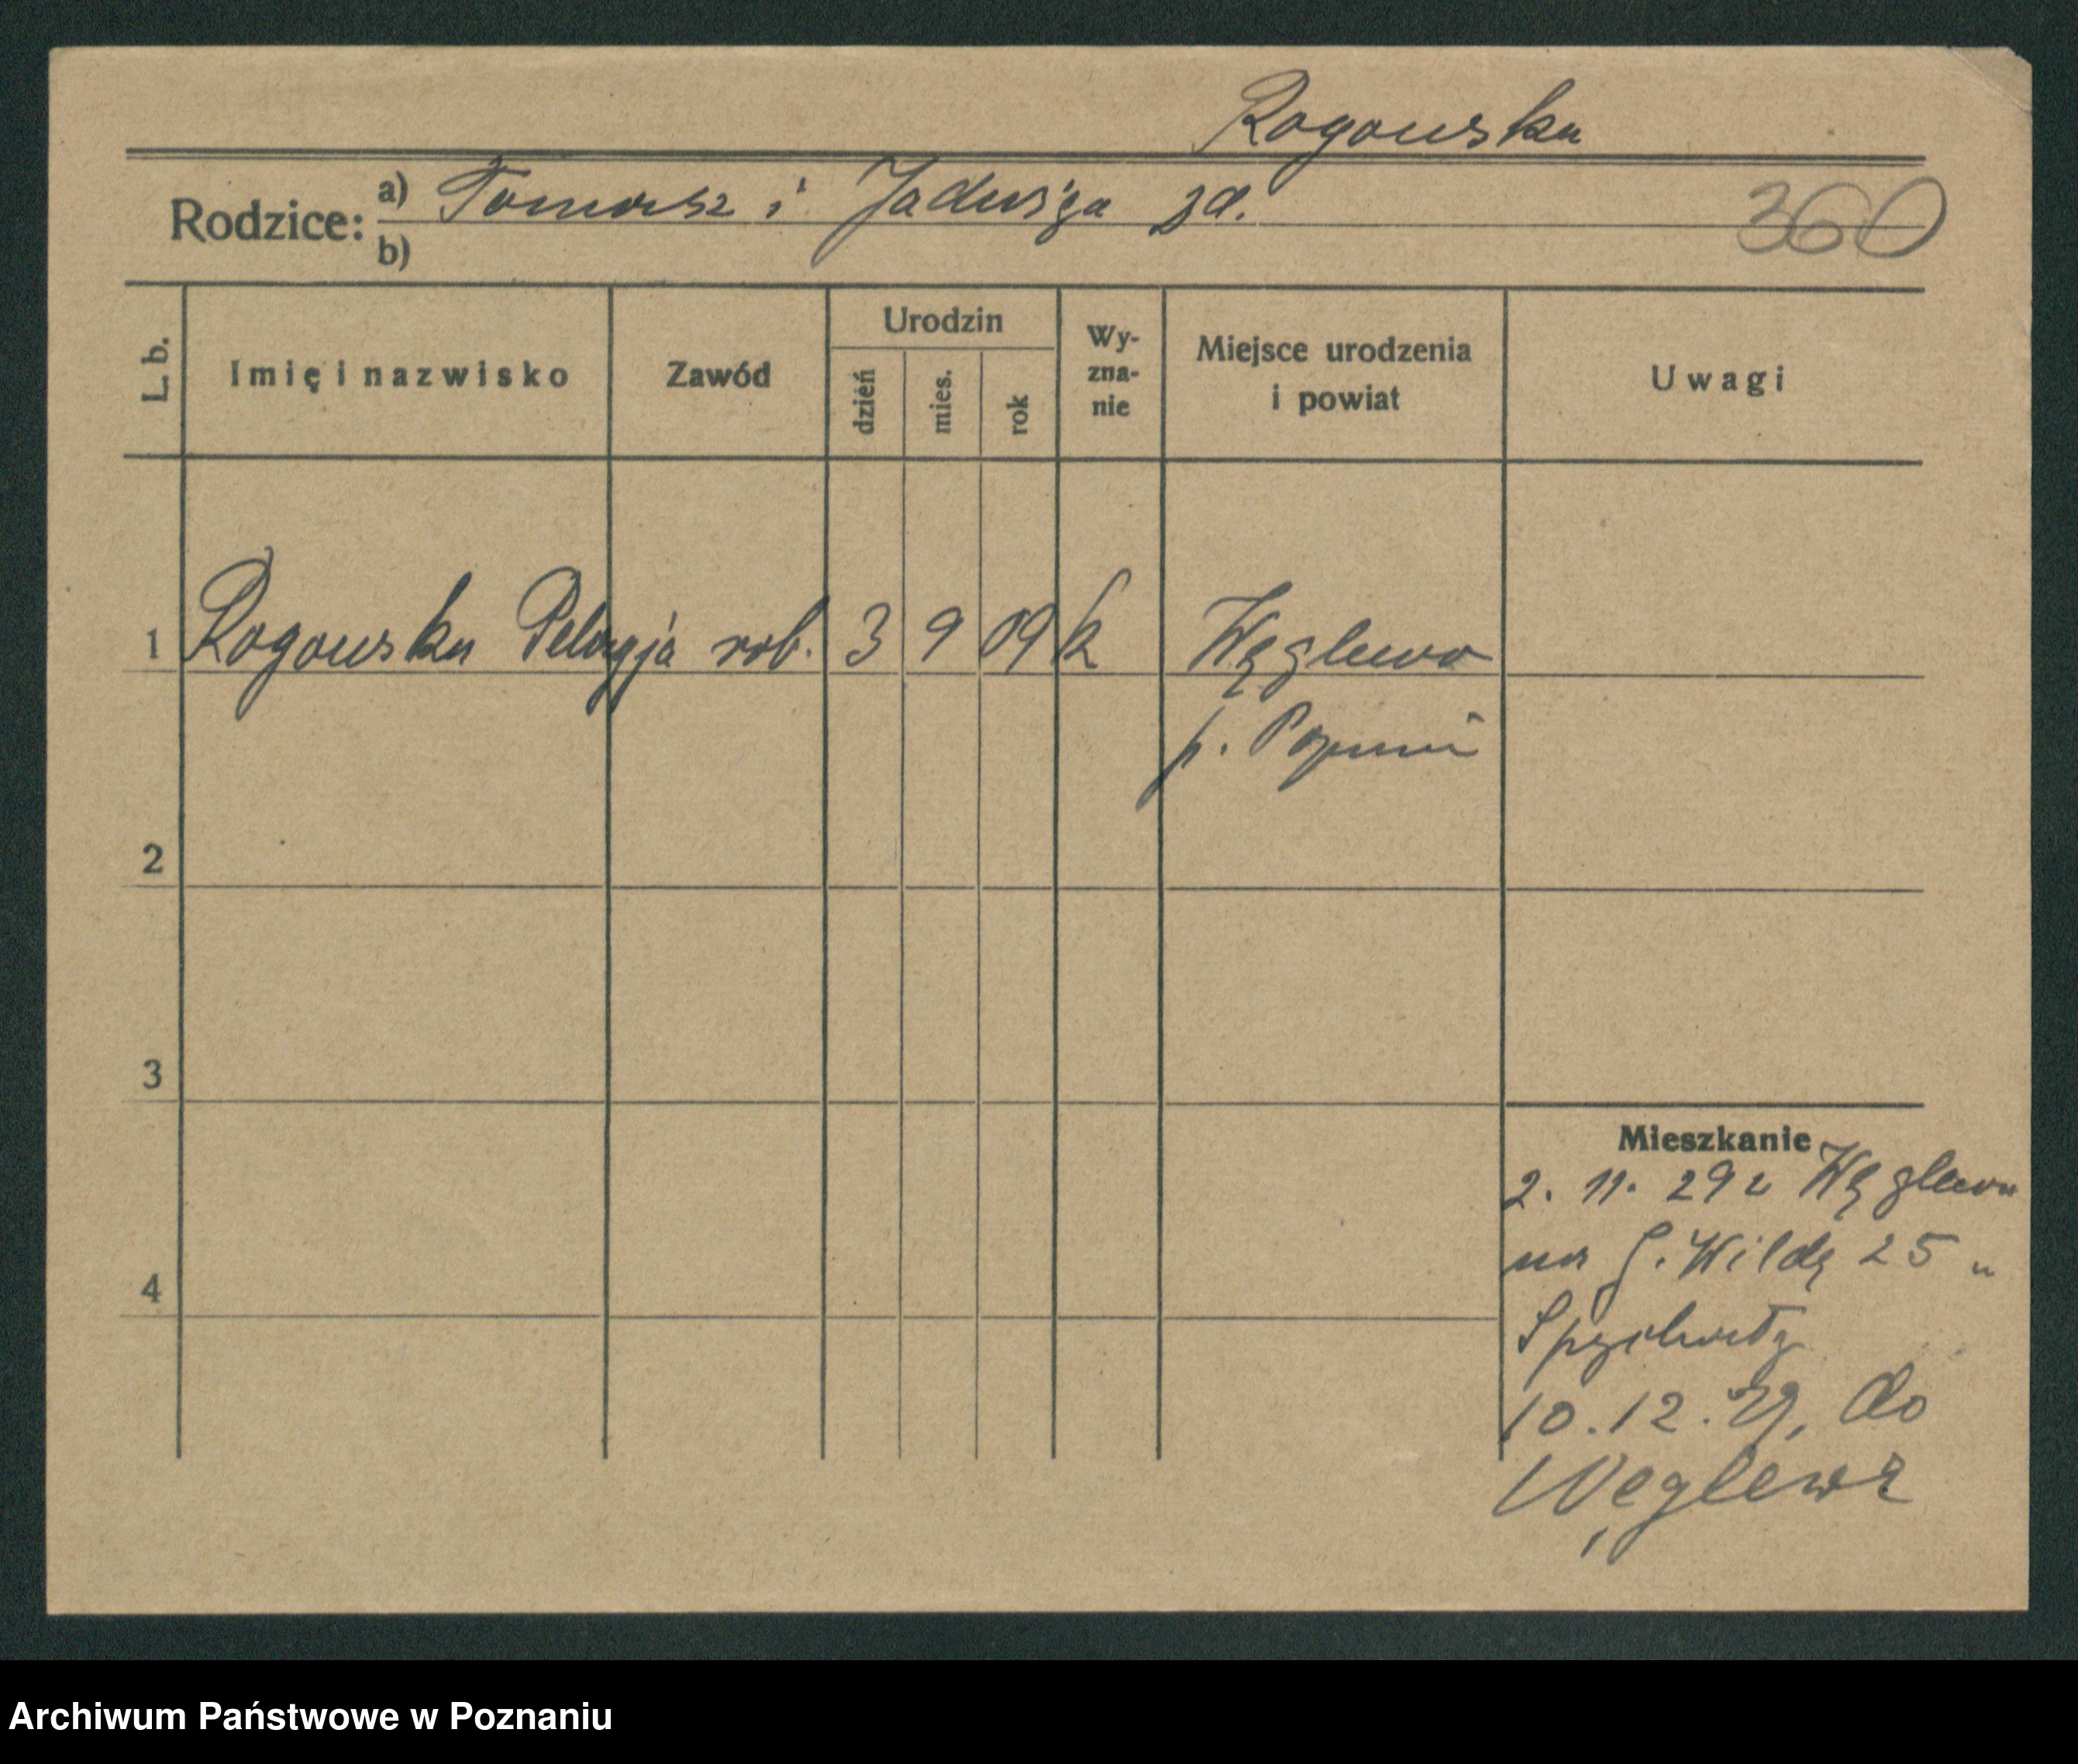 Rogowska
Rodzice: a) Tomasz i Jadwiga zd.
b)
360
L. b. Imię i nazwisko Zawód Urodzin dzień mies. rok Wy-zna-nie Miejsce urodzenia i powiat Uwagi
1 Rogowska Pelagja rob. 3 9 09 k Węglewo
p. Poznań
2
3
Mieszkanie
2. 11. 29 z Węglewa
na G. Wildę 25 u
4
Spychały
10. 12. 29, do
Węglewa
Archiwum Państwowe w Poznaniu